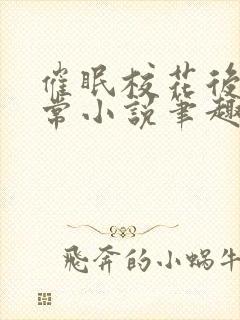 催眠校花後
常小說筆趣
飛奔的小蝸牛